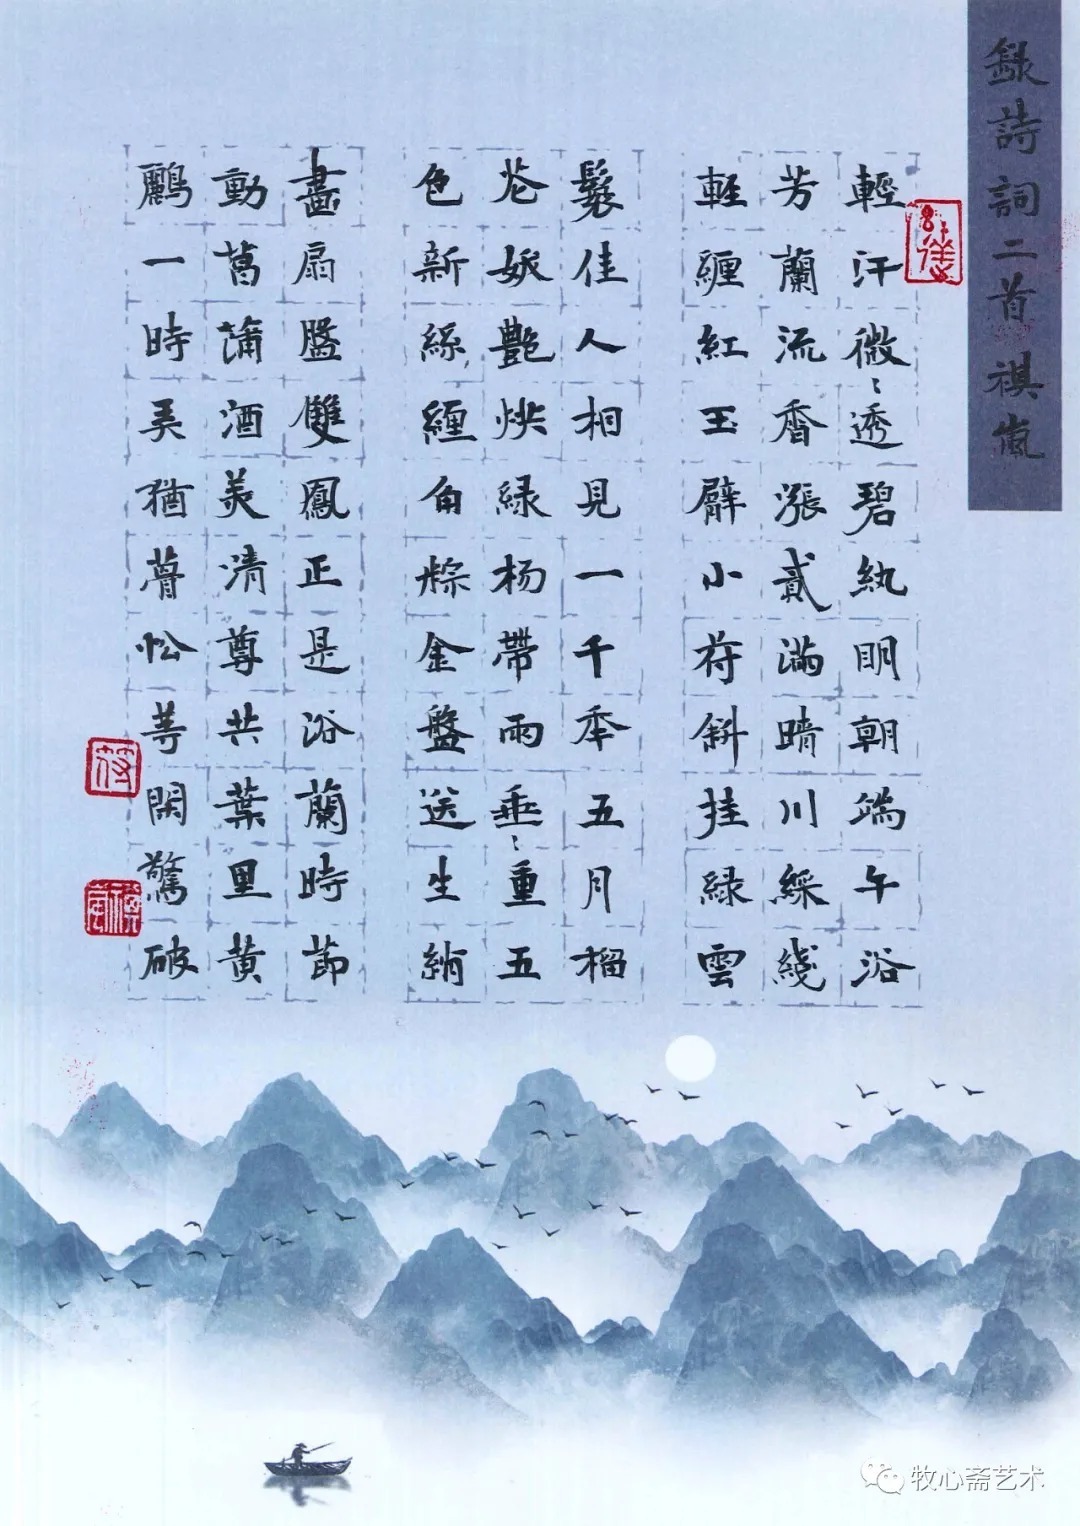 錄詩詞二首祺嵐
輕汗微〻透碧紈明朝端午浴
芳蘭流香漲貳滿晴川綵綫
輕纏紅玉臂小符斜挂緑雲
鬟佳人相見一千年五月榴
花妖艷烘緑杨帶雨垂〻重五
色新絲纏角粽金盤送生綃
畫扇盤雙鳳正是浴蘭時節
動菖蒲酒美清尊共葉里黄
鸝一時弄猶瞢忪等閑驚破
牧心斋艺术